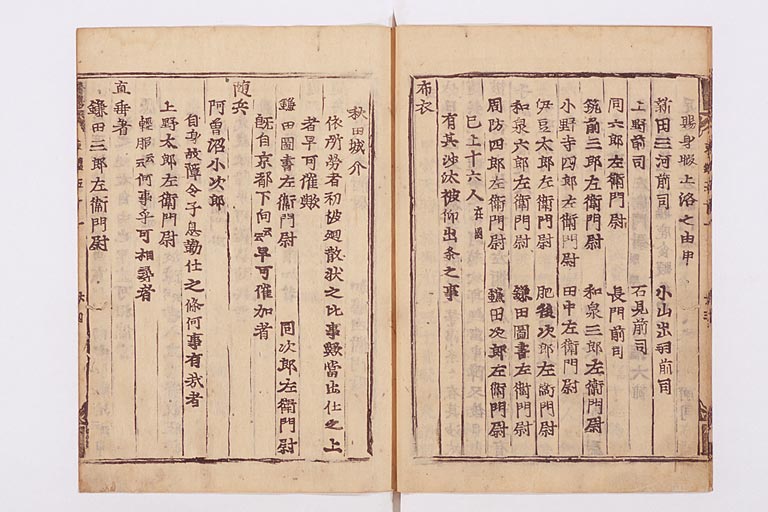 足賜身暇上洛之由申
新田三河前司　小山出羽前司
上野前司　石見前司
同六郎左衛門尉　長門前司
筑前三郎左衛門尉　和泉三郎左衛門尉
小野寺四郎左衛門尉　田中左衛門尉
伊豆太郎左衛門尉　肥後次郎左衛門尉
和泉六郎左衛門尉　鎌田圖書左衛門尉
周防四郎左衛門尉　鎌田次郎左衛門尉
已上十六人在國
有其沙汰被仰出条之事
布衣
秋田城介
依所勞者初被廻散状之比事歟當出仕之上
者早可催歟
鎌田圖書左衛門尉　同次郎左衛門尉
既自京都下向云云早可催加者
随兵
阿曽沼小次郎
自身故障令子息勤仕之條何事有哉者
上野太郎左衛門尉
輕服云云何事乎可相尋者
直垂者
鎌田三郎左衛門尉